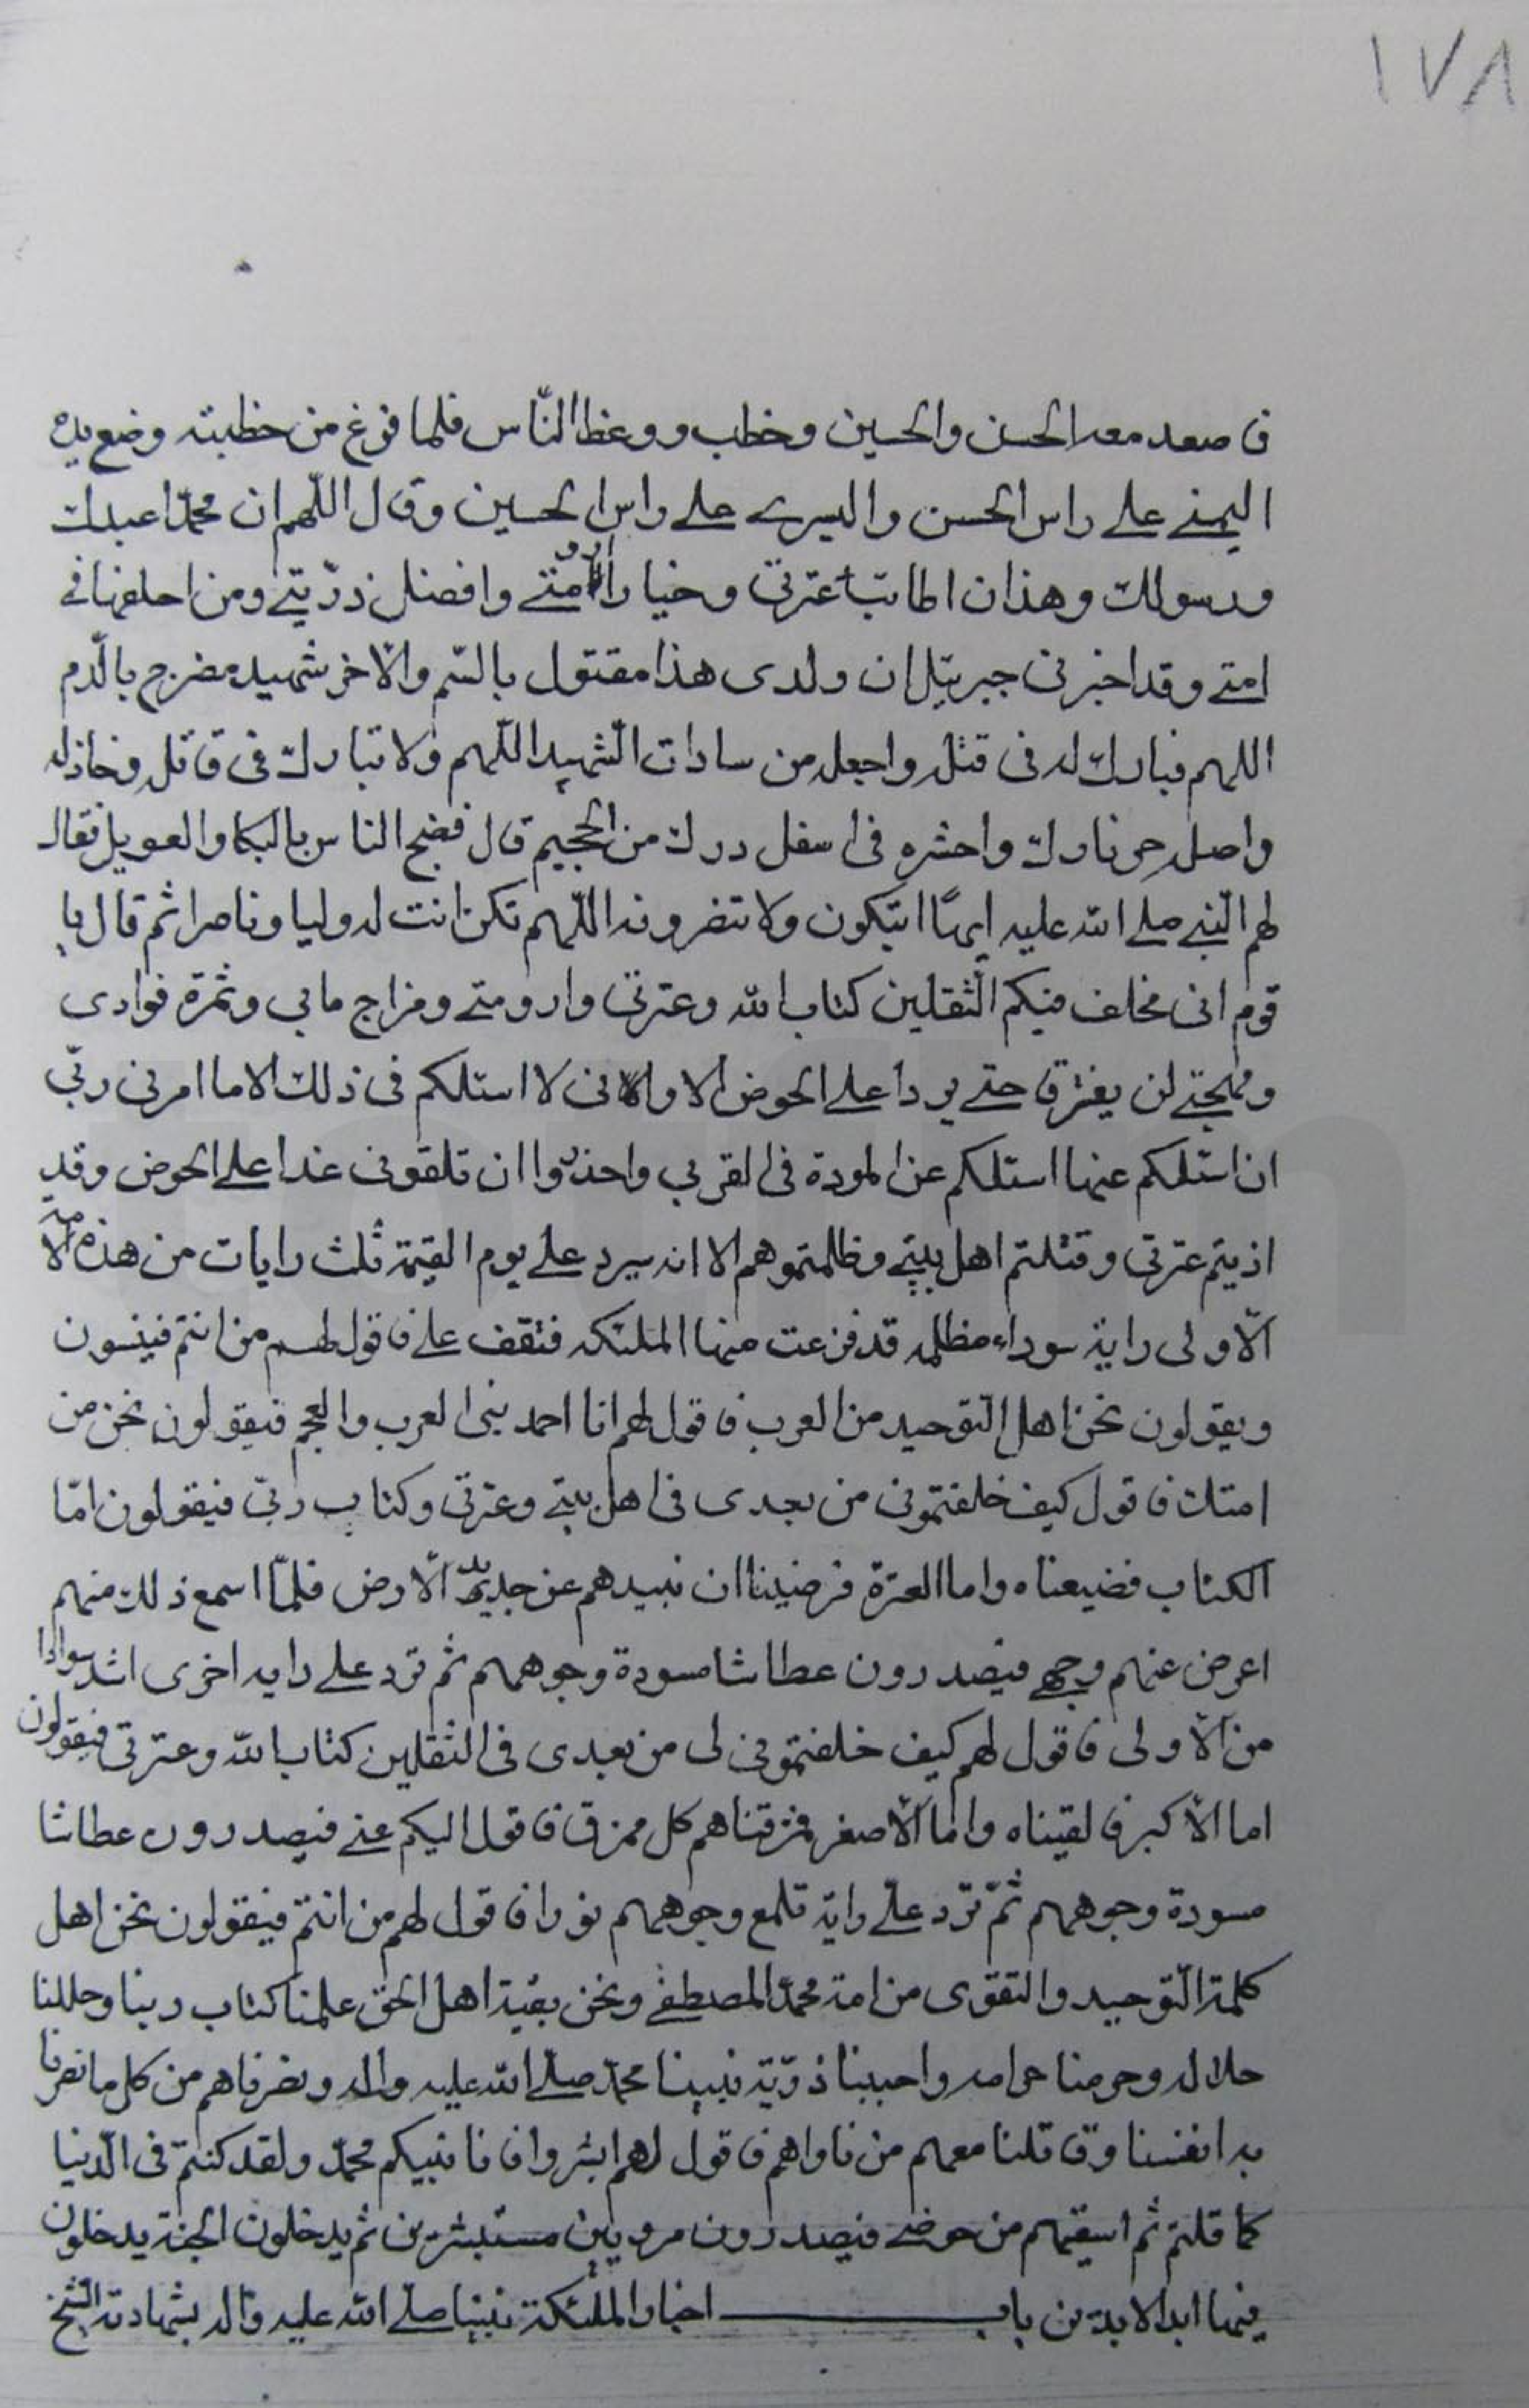 ١٧٨
فاصعد معه الحسن والحسين وخطب ووعظ النّاس فلما فرغ من خطبته وضع يده
اليمنے علے راس الحسن واليسرے علے راس الحسين وقال اللّهم ان محمّدا عبدك
ورسولك وهذان اطائب عترتى وخيار ارومتے وافضل ذرّيتے ومن اخلفهما فے
امتے وقد اخبرنى جبرئيل ان ولدى هذا مقتول بالسّم والآخر شهيد مضرج بالدّم
اللهم فبارك له فى قتله واجعله من سادات الشّهدا اللّهم ولا تبارك فى قاتله وخاذله
واصله حر نارك واحشره فى اسفل درك من الجحيم قال فضج الناس بالبكا والعويل فقال
لهم النّبے صلے الله عليه ايها اتبكون ولا تنصرونه اللّهم تكن انت له وليا وناصرا ثم قال يا
قوم انى مخلف فيكم الثّقلين كتاب الله وعترتى وارومتے ومزاج مايى وثمرة فوادى
ومهجتے لن يفترقا حتے يردا علے الحوض الا وانى لا اسئلكم فى ذلك الا ما امرنى ربّى
ان اسئلكم عنها اسئلكم عن المودة فى القربى واحذروا ان تلقونى غدا علے الحوض وقد
اذيتم عترتى وقتلتم اهل بيتے وظلمتموهم الا انه سيرد علے يوم القيمة ثلث رايات من هذه الامة
الاولى راية سوداء مظلمه قد فزعت منها الملئكه فتقف علے فاقول لهم من انتم فينسون
ويقولون نحن اهل التّوحيد من العرب فاقول لهم انا احمد نبى العرب والعجم فيقولون نحن من
امتك فاقول كيف خلفتمونى من بعدى فى اهل بيتے وعترتى وكتاب ربّى فيقولون امّا
الكتاب فضيعناه واما العترة فرضينا ان نبيدهم عن جديد الارض فلمّا اسمع ذلك منهم
اعرض عنهم وجهے فيصدرون عطاشا مسودة وجوههم ثم ترد علے رايه اخرى اشد سوادا
من الاولى فاقول لهم كيف خلفتمونى لى من بعدى فى الثقلين كتاب الله وعترتى فيقولون
اما الاكبر فالقيناه واما الاصغر فمزقناهم كل ممزق فاقول اليكم عنے فيصدرون عطاشا
مسودة وجوههم ثمّ ترد علے راية تلمع وجوههم نورا فاقول لهم من انتم فيقولون نحن اهل
كلمة التّوحيد والتقوى من امة محمّد المصطفے ونحن بقية اهل الحق علمنا كتاب ربنا وحللنا
حلاله وحرمنا حرامه واحببنا ذرّية نبينا محمّد صلّے الله عليه واله ونصرناهم من كل ما نصرنا
به انفسنا وقاتلنا معهم من ناواهم فاقول لهم ابشروا فانا نبيكم محمّد ولقد كنتم فى الدّنيا
كما قلتم ثم اسقيهم من حوضے فيصدرون مرويين مستبشرين ثم يدخلون الجنة يدخلون
فيها ابد الابدين باب اخبار الملئكة نبينا صلّے الله عليه واله بشهادته الشّيخ